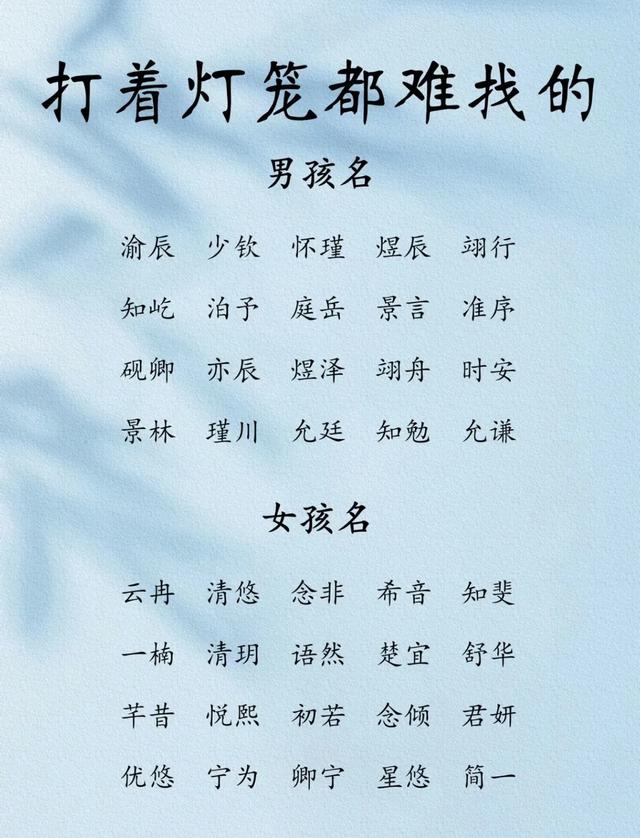 打着灯笼都难找的
男孩名
渝辰 少钦 怀瑾 煜辰 翊行
知屹 泊予 庭岳 景言 准序
砚卿 亦辰 煜泽 翊舟 时安
景林 瑾川 允廷 知勉 允谦
女孩名
云冉 清悠 念非 希音 知斐
一楠 清玥 语然 楚宜 舒华
芊昔 悦熙 初若 念倾 君妍
优悠 宁为 卿宁 星悠 简一